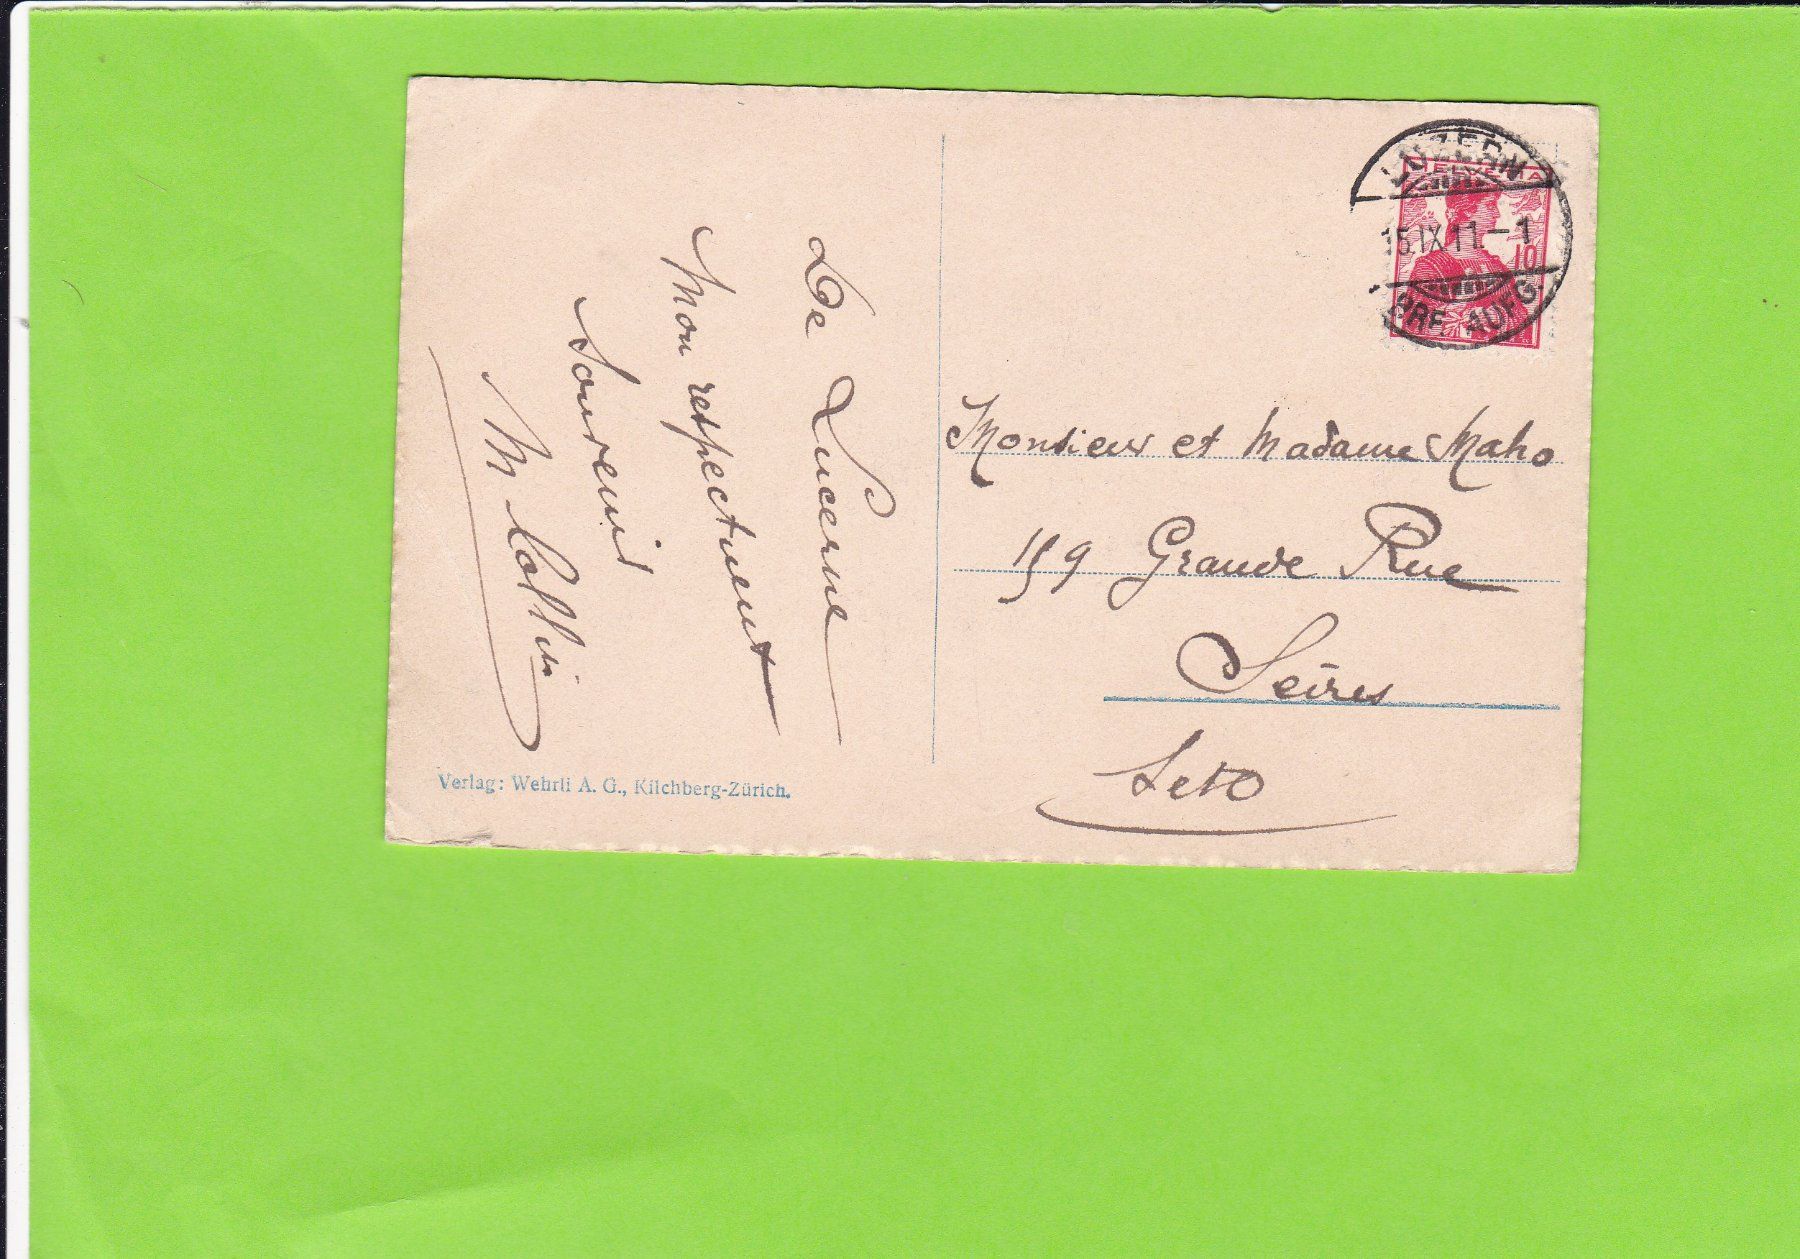 De Lucerne
Mon respectueux
Souvenir
M
LUZERN
HELVETIA
15.IX.11.-1
10
BRF. AUFG.
Monsieur et Madame Maho
159 Grande Rue
Sèvres
Verlag: Wehrli A. G., Kilchberg-Zürich.